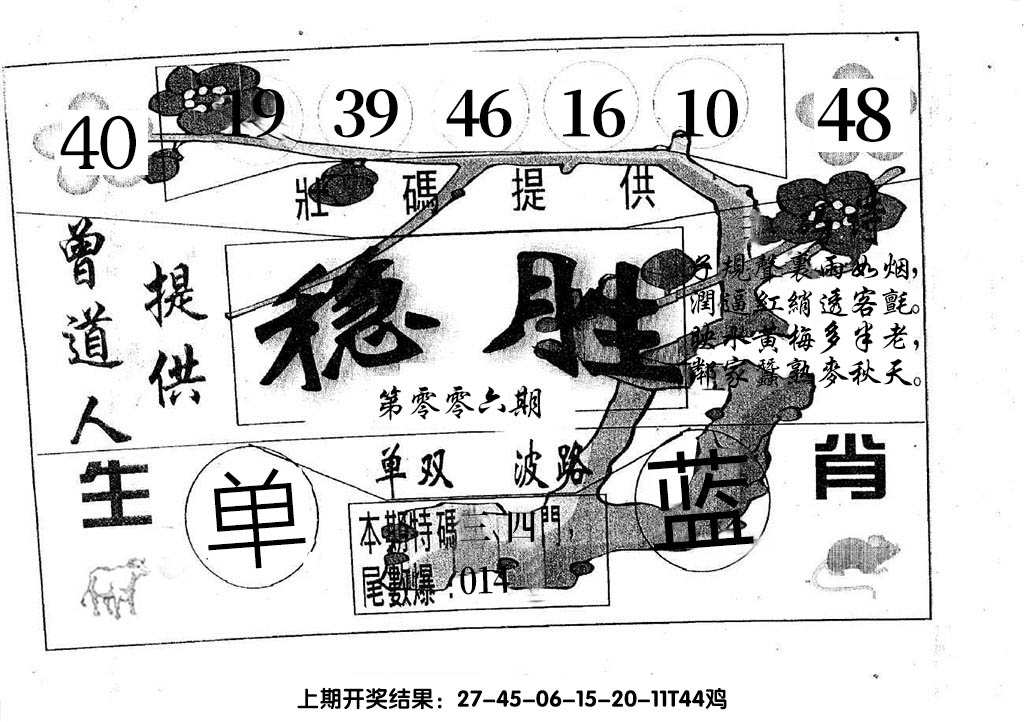 40 19 39 46 16 10 48
壯碼提供
曾道人
提供
稳胜
第零零六期
規聲裏雨如烟，
潤逼紅綃透客氈。
映水黃梅多半老，
鄰家蠶熟麥秋天。
单双 波路
生肖
单
蓝
本期特碼三、四門，
尾數爆：014
上期开奖结果：27-45-06-15-20-11T44鸡